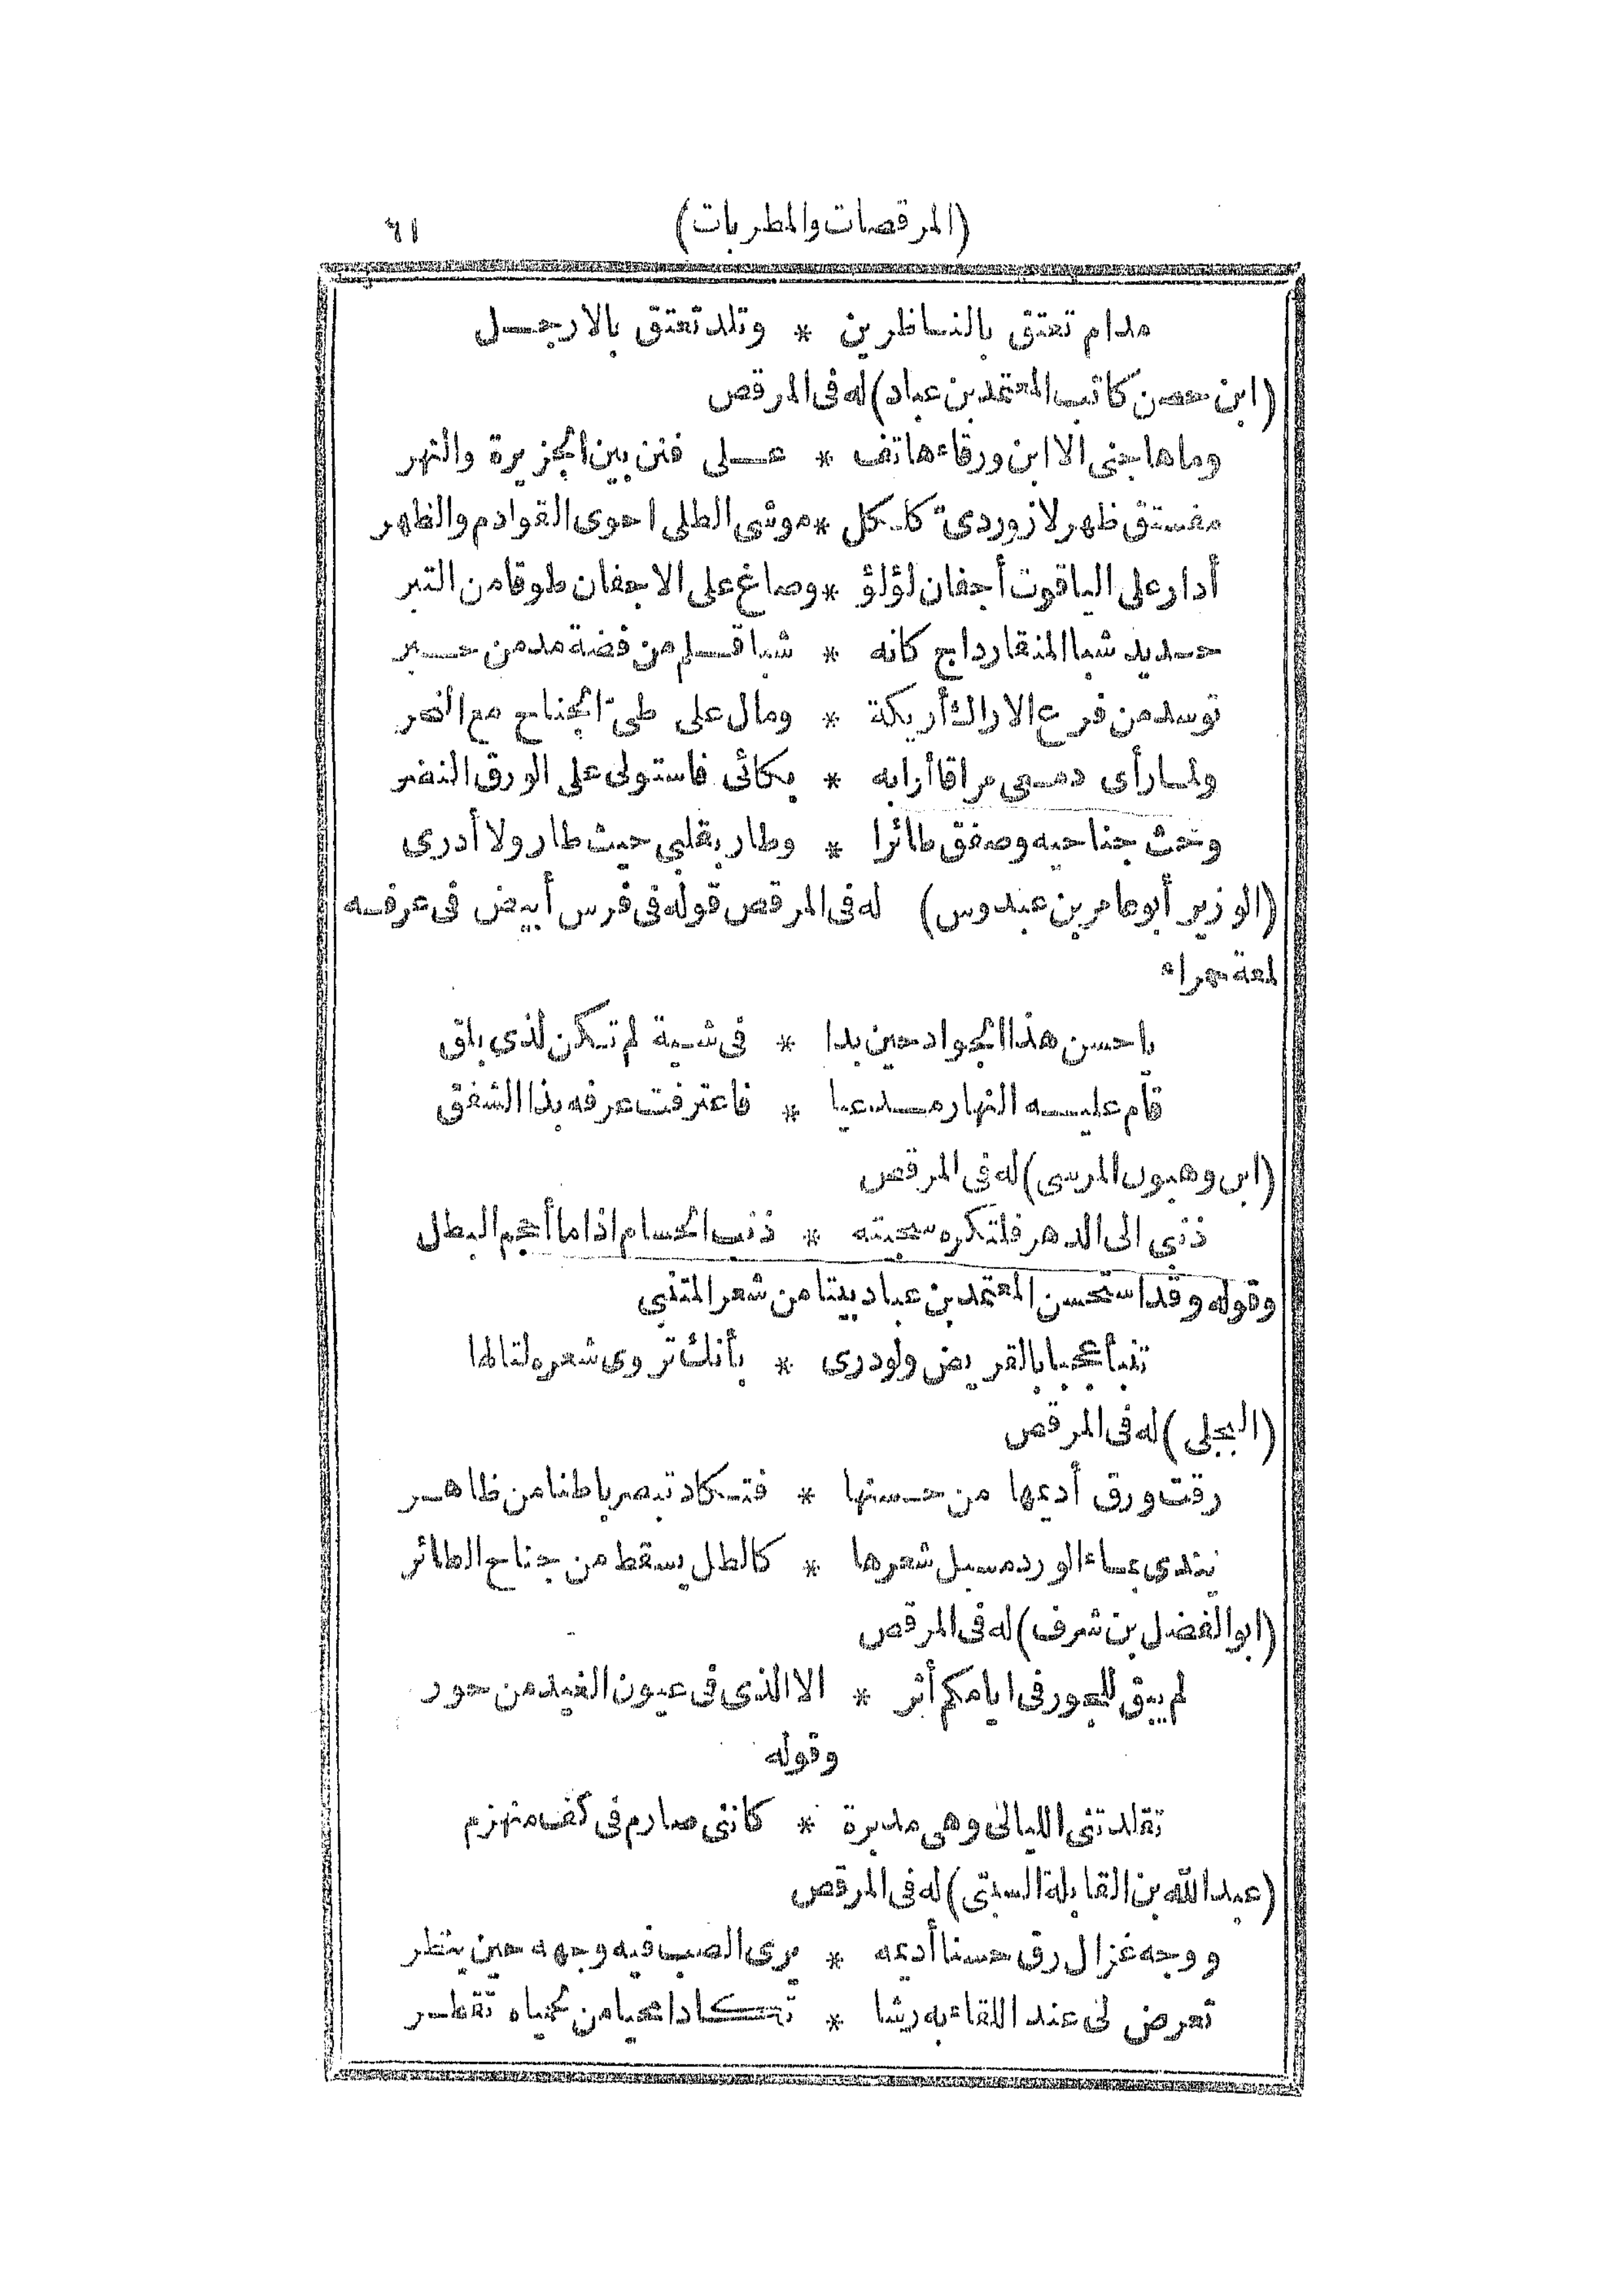 (المرقصات والمطربات) ٦١
مدام تعتق بالناظرين * وتلك تعتق بالارجل
(ابن حصن كاتب المعتمد بن عباد) له فى المرقص
وما هاجنى الا ابن ورقاء هاتف * على فنن بين الجزيرة والنهر
مفستق ظهر لازوردى كلكل * موشى الطلى احوى القوادم والظهر
أدار على الياقوت أجفان لؤلؤ * وصاغ على الاجفان طوقا من التبر
حديد شبا المنقار داج كانه * شبا قلم من فضة مد من حبر
توسد من فرع الاراك أريكة * ومال على طى الجناح مع النحر
ولما رأى دمعى مراقا أرابه * بكائى فاستولى على الورق النضر
وحث جناحيه وصفق طائرا * وطار بقلبى حيث طار ولا أدرى
(الوزير أبو عامر بن عبدوس) له فى المرقص قوله فى فرس أبيض فى عرفه
لمعة حمراء
يا حسن هذا الجواد حين بدا * فى شية لم تكن لذى بلق
قام عليه النهار مدعيا * فاعترفت عرفه بذا الشفق
(ابن وهبون المرسى) له فى المرقص
ذنبى الى الدهر فلتكره سجيته * ذنب الحسام اذا ما أحجم البطل
وقوله وقد استحسن المعتمد بن عباد بيتا من شعر المتنبى
تنبأ عجبا بالقريض ولو درى * بأنك تروى شعره لتالها
(البجلى) له فى المرقص
رقت ورق أديمها من حسنها * فتكاد تبصر باطنا من ظاهر
يندى بماء الورد مسبل شعرها * كالطل يسقط من جناح الطائر
(ابو الفضل بن شرف) له فى المرقص
لم يبق للجور فى ايامكم أثر * الا الذى فى عيون الغيد من حور
وقوله
تقلدتنى الليالى وهى مدبرة * كاننى صارم فى كف منهزم
(عبد الله بن القابلة السبتى) له فى المرقص
ووجه غزال رق حسنا أديمه * يرى الصب فيه وجهه حين ينظر
تعرض لى عند اللقاء به رشا * تكاد الحميا من محياه تقطر